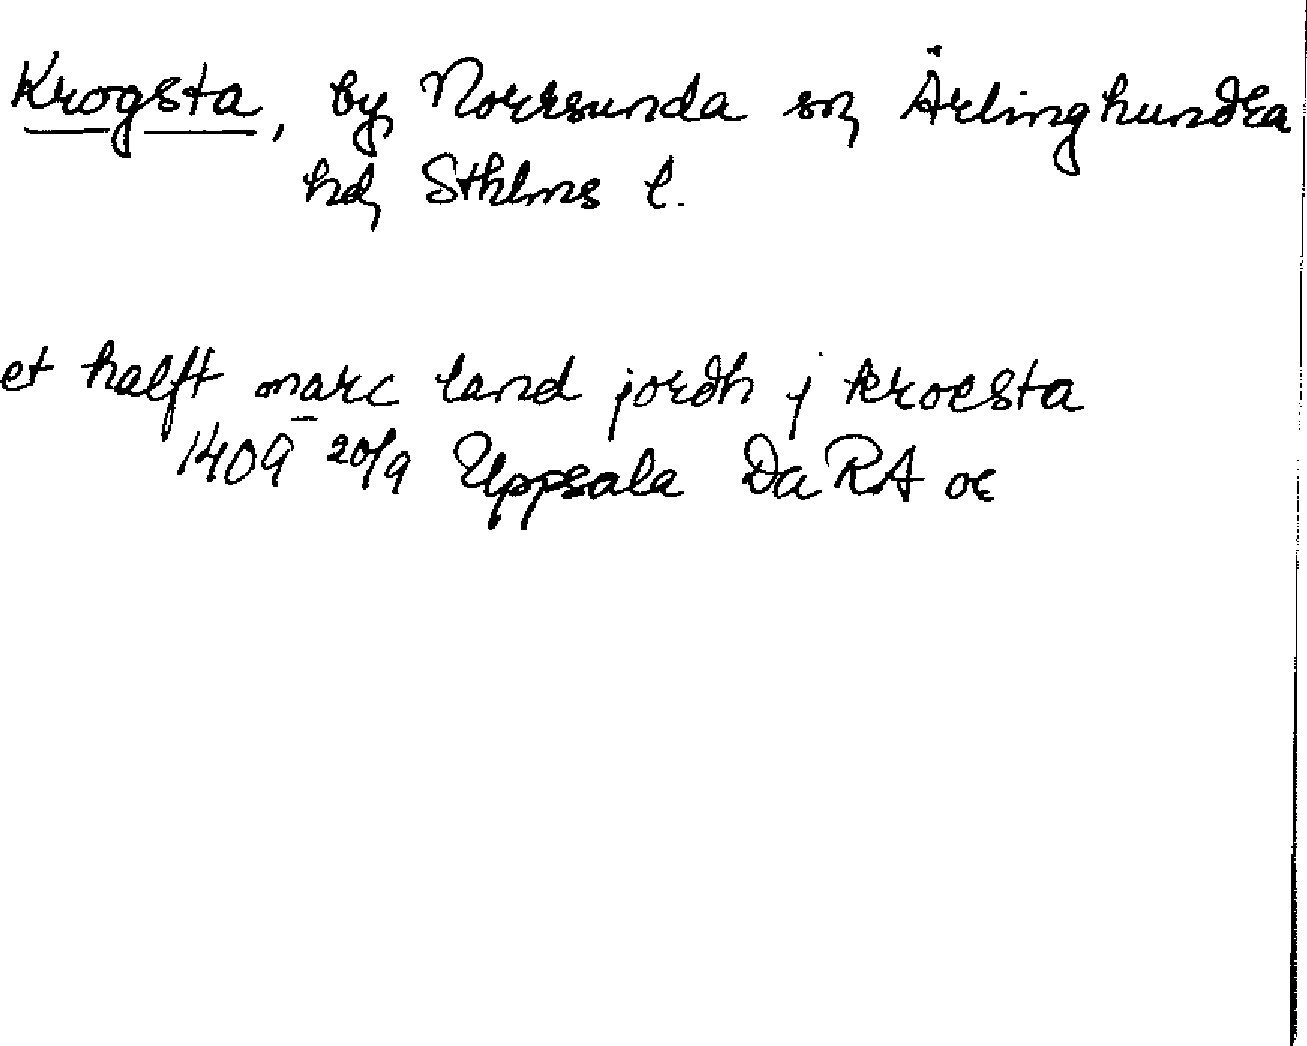 Krogsta, by, Norrsunda sn, Ärlinghundra
hd, Sthlms l.
et halft marc land jordh j krocsta
1409 20/9 Uppsala Da RA or